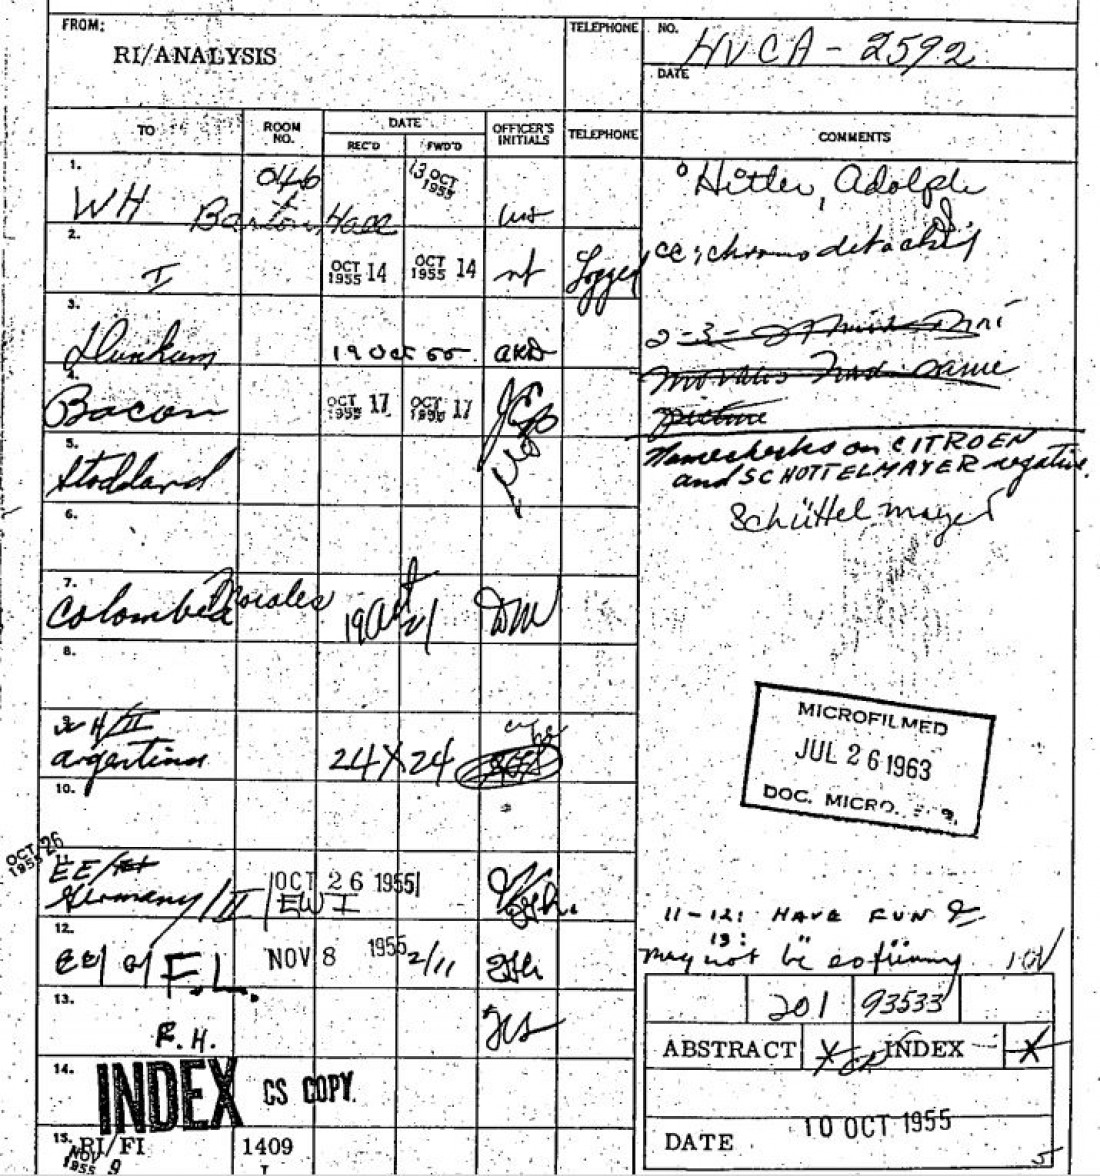 FROM:
RI/ANALYSIS
TELEPHONE
NO.
HVCA-2592
DATE
TO
ROOM NO.
DATE
REC'D
FWD'D
OFFICER'S INITIALS
TELEPHONE
COMMENTS
1.
WH
046
Barton Hall
13 OCT 1955
Hitler, Adolph
2.
I
OCT 14 1955
OCT 14 1955
Logged
cc; chrono detached
3.
Dunham
19 Oct 55
akd
2-3-
had same
picture
4.
Bacon
OCT 17 1955
OCT 17 1955
5.
Stoddard
Namechecks on CITROEN
and SCHOTTELMAYER negative.
Schüttelmayer
6.
7.
Colombia
Morales
19 Oct
DM
8.
9.
WH/III
Argentina
24 X 24
10.
MICROFILMED
JUL 26 1963
DOC. MICRO.
OCT 26 1955
11.
EE/
Germany/II
OCT 26 1955
EW I
11-12: HAVE FUN
13:
may not be so funny
12.
EE/G/F.I.
NOV 8 1955
2/11
13.
R.H.
201
93533
ABSTRACT
X
INDEX
X
14.
INDEX
CS COPY
DATE
10 OCT 1955
15.
RI/FI
1409
NOV 9 1955
5